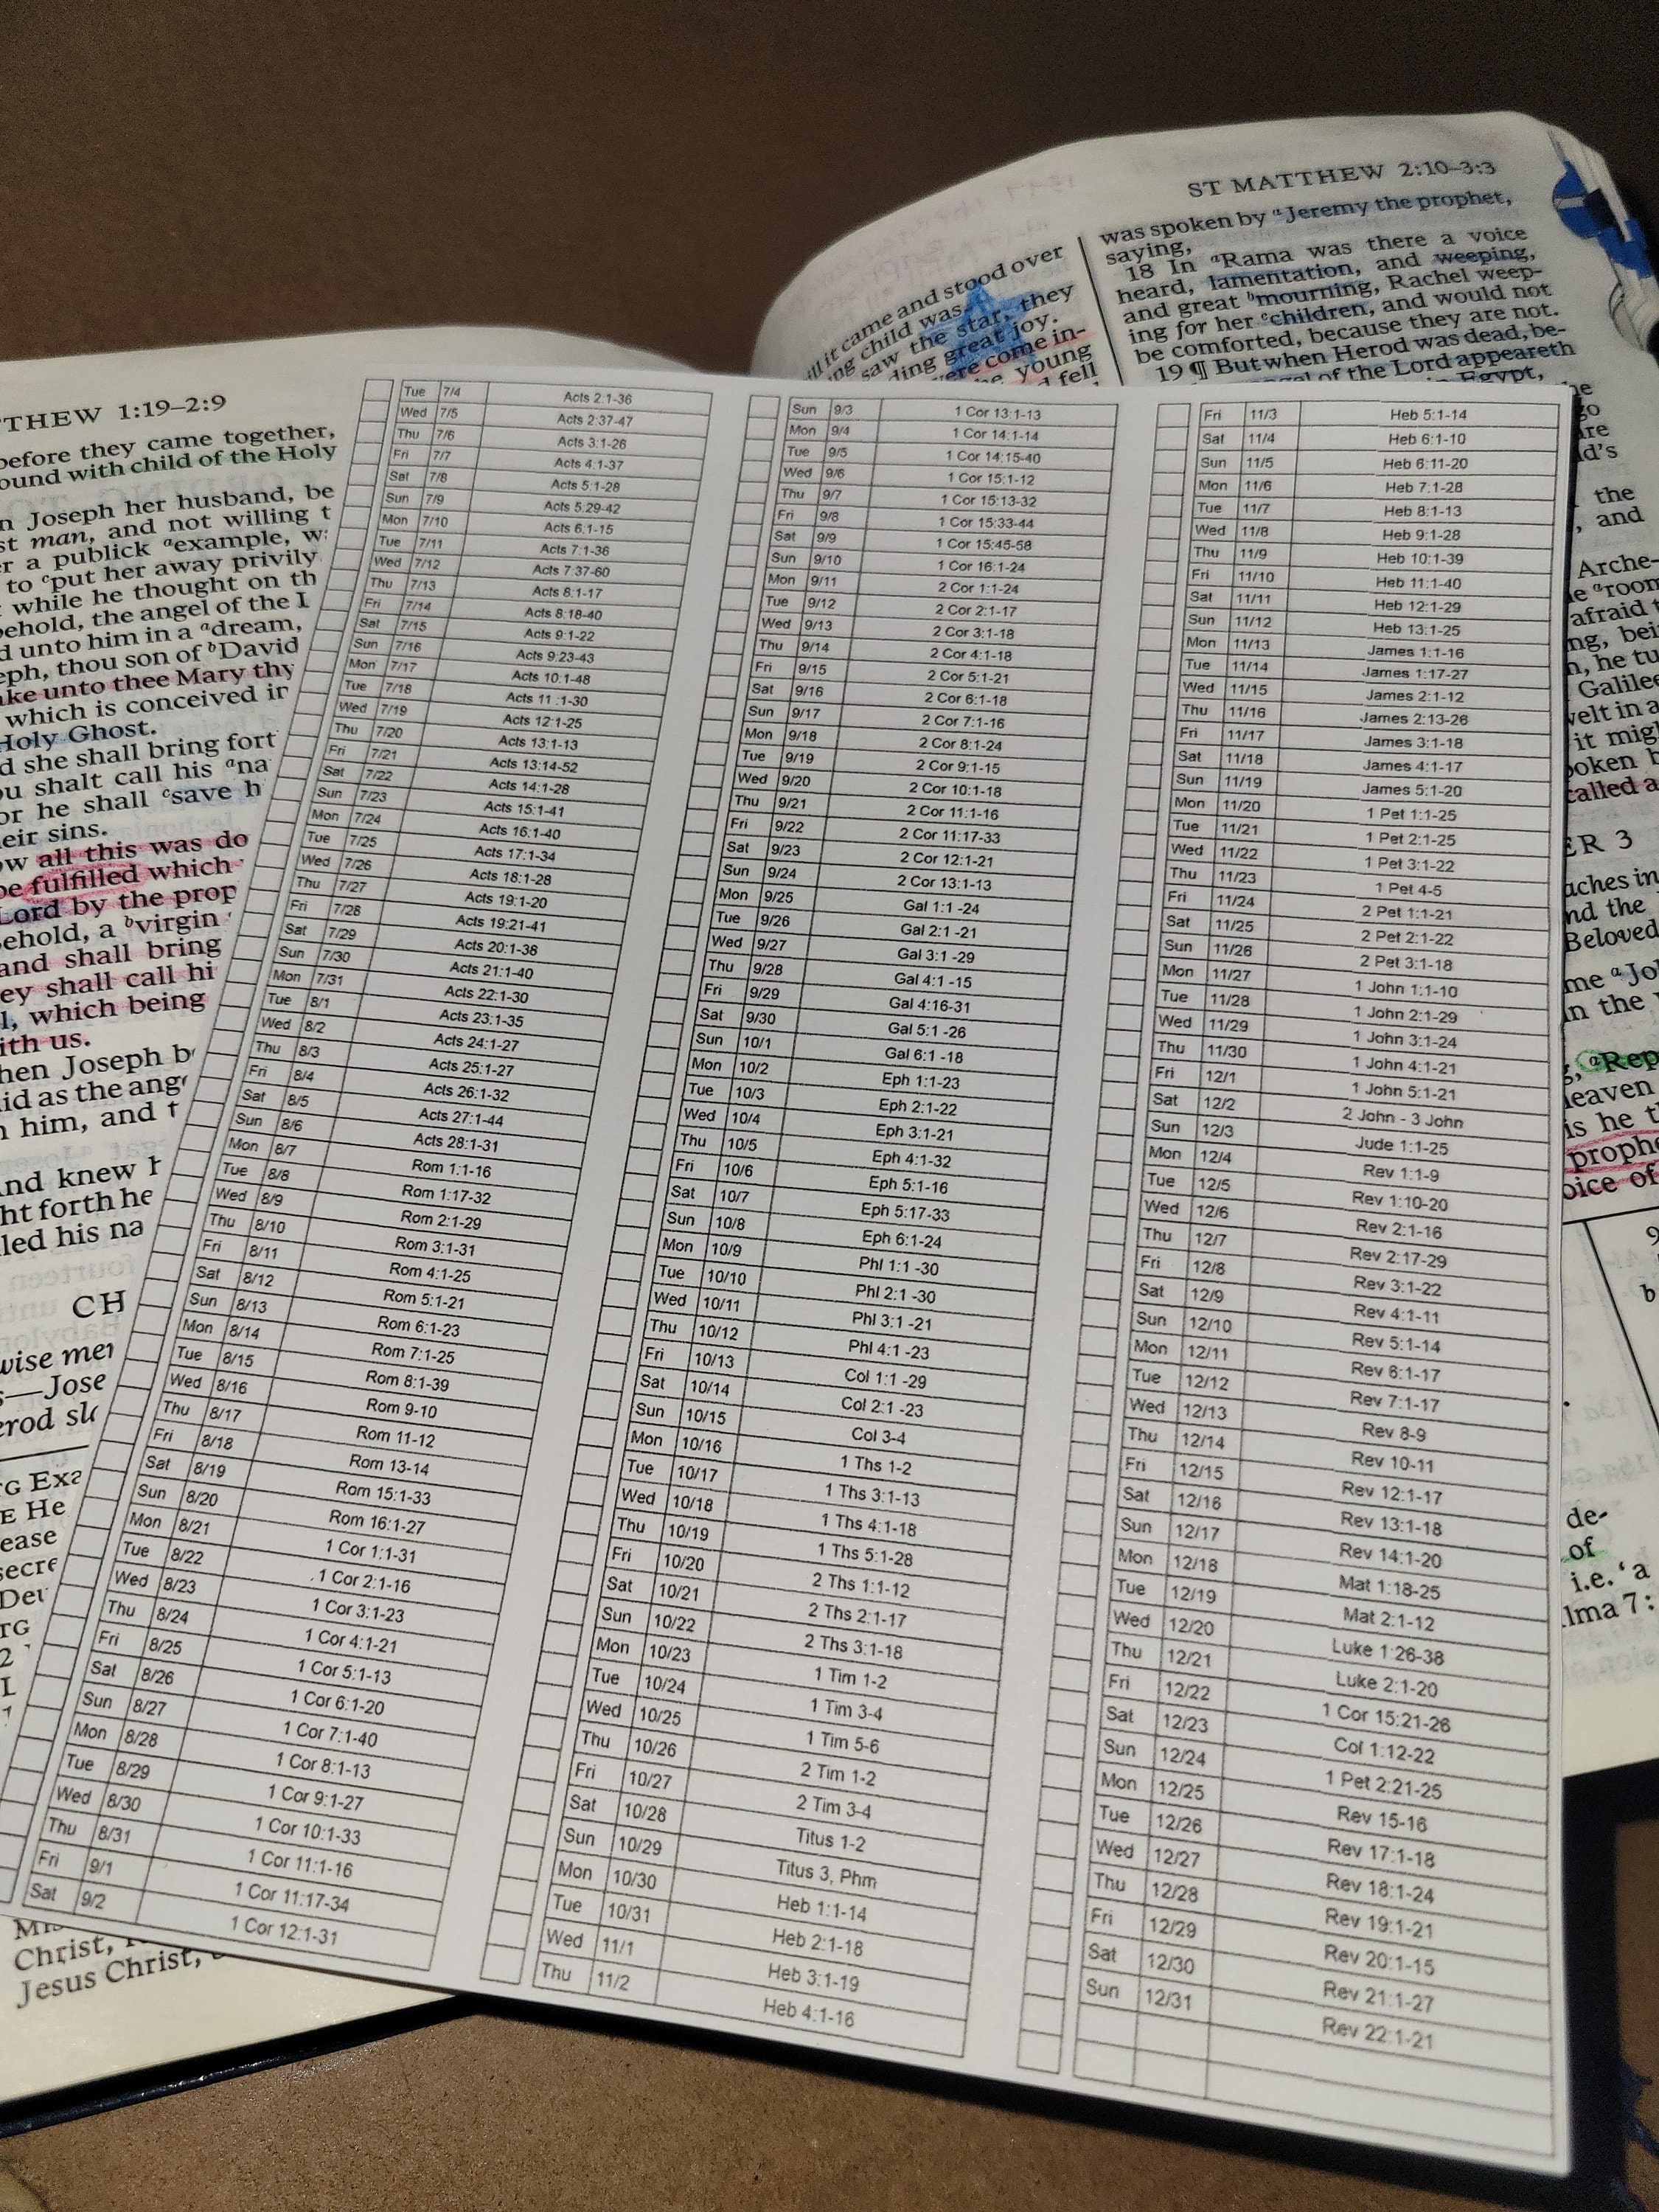 ST MATTHEW 2:10–3:3
it came and stood over
child was.
saw the star, they
great joy.
were come in-
young
fell
was spoken by ᵃJeremy the prophet,
saying,
18 In ᵃRama was there a voice
heard, lamentation, and weeping,
and great ᵇmourning, Rachel weep-
ing for her ᶜchildren, and would not
be comforted, because they are not.
19 ¶ But when Herod was dead, be-
of the Lord appeareth
in Egypt,
1:19–2:9
before they came together,
with child of the Holy
Joseph her husband, be
man, and not willing
a publick ᵃexample,
to ᶜput her away privily
while he thought on
behold, the angel of the
unto him in a ᵃdream,
thou son of ᵇDavid
unto thee Mary thy
which is conceived
Holy Ghost.
she shall bring
shalt call his
or he shall ᶜsave
their sins.
all this was
be fulfilled which
Lord by the
a ᵇvirgin
and shall bring
they shall call
which being
with us.
Joseph
as the
him, and
And knew
forth
his
CH
wise
Tue 7/4 Acts 2:1-36
Wed 7/5 Acts 2:37-47
Thu 7/6 Acts 3:1-26
Fri 7/7 Acts 4:1-37
Sat 7/8 Acts 5:1-28
Sun 7/9 Acts 5:29-42
Mon 7/10 Acts 6:1-15
Tue 7/11 Acts 7:1-36
Wed 7/12 Acts 7:37-60
Thu 7/13 Acts 8:1-17
Fri 7/14 Acts 8:18-40
Sat 7/15 Acts 9:1-22
Sun 7/16 Acts 9:23-43
Mon 7/17 Acts 10:1-48
Tue 7/18 Acts 11:1-30
Wed 7/19 Acts 12:1-25
Thu 7/20 Acts 13:1-13
Fri 7/21 Acts 13:14-52
Sat 7/22 Acts 14:1-28
Sun 7/23 Acts 15:1-41
Mon 7/24 Acts 16:1-40
Tue 7/25 Acts 17:1-34
Wed 7/26 Acts 18:1-28
Thu 7/27 Acts 19:1-20
Fri 7/28 Acts 19:21-41
Sat 7/29 Acts 20:1-38
Sun 7/30 Acts 21:1-40
Mon 7/31 Acts 22:1-30
Tue 8/1 Acts 23:1-35
Wed 8/2 Acts 24:1-27
Thu 8/3 Acts 25:1-27
Fri 8/4 Acts 26:1-32
Sat 8/5 Acts 27:1-44
Sun 8/6 Acts 28:1-31
Mon 8/7 Rom 1:1-16
Tue 8/8 Rom 1:17-32
Wed 8/9 Rom 2:1-29
Thu 8/10 Rom 3:1-31
Fri 8/11 Rom 4:1-25
Sat 8/12 Rom 5:1-21
Sun 8/13 Rom 6:1-23
Mon 8/14 Rom 7:1-25
Tue 8/15 Rom 8:1-39
Wed 8/16 Rom 9-10
Thu 8/17 Rom 11-12
Fri 8/18 Rom 13-14
Sat 8/19 Rom 15:1-33
Sun 8/20 Rom 16:1-27
Mon 8/21 1 Cor 1:1-31
Tue 8/22 1 Cor 2:1-16
Wed 8/23 1 Cor 3:1-23
Thu 8/24 1 Cor 4:1-21
Fri 8/25 1 Cor 5:1-13
Sat 8/26 1 Cor 6:1-20
Sun 8/27 1 Cor 7:1-40
Mon 8/28 1 Cor 8:1-13
Tue 8/29 1 Cor 9:1-27
Wed 8/30 1 Cor 10:1-33
Thu 8/31 1 Cor 11:1-16
Fri 9/1 1 Cor 11:17-34
Sat 9/2 1 Cor 12:1-31
Sun 9/3 1 Cor 13:1-13
Mon 9/4 1 Cor 14:1-14
Tue 9/5 1 Cor 14:15-40
Wed 9/6 1 Cor 15:1-12
Thu 9/7 1 Cor 15:13-32
Fri 9/8 1 Cor 15:33-44
Sat 9/9 1 Cor 15:45-58
Sun 9/10 1 Cor 16:1-24
Mon 9/11 2 Cor 1:1-24
Tue 9/12 2 Cor 2:1-17
Wed 9/13 2 Cor 3:1-18
Thu 9/14 2 Cor 4:1-18
Fri 9/15 2 Cor 5:1-21
Sat 9/16 2 Cor 6:1-18
Sun 9/17 2 Cor 7:1-16
Mon 9/18 2 Cor 8:1-24
Tue 9/19 2 Cor 9:1-15
Wed 9/20 2 Cor 10:1-18
Thu 9/21 2 Cor 11:1-16
Fri 9/22 2 Cor 11:17-33
Sat 9/23 2 Cor 12:1-21
Sun 9/24 2 Cor 13:1-13
Mon 9/25 Gal 1:1 -24
Tue 9/26 Gal 2:1 -21
Wed 9/27 Gal 3:1 -29
Thu 9/28 Gal 4:1 -15
Fri 9/29 Gal 4:16-31
Sat 9/30 Gal 5:1 -26
Sun 10/1 Gal 6:1 -18
Mon 10/2 Eph 1:1-23
Tue 10/3 Eph 2:1-22
Wed 10/4 Eph 3:1-21
Thu 10/5 Eph 4:1-32
Fri 10/6 Eph 5:1-16
Sat 10/7 Eph 5:17-33
Sun 10/8 Eph 6:1-24
Mon 10/9 Phl 1:1 -30
Tue 10/10 Phl 2:1 -30
Wed 10/11 Phl 3:1 -21
Thu 10/12 Phl 4:1 -23
Fri 10/13 Col 1:1 -29
Sat 10/14 Col 2:1 -23
Sun 10/15 Col 3-4
Mon 10/16 1 Ths 1-2
Tue 10/17 1 Ths 3:1-13
Wed 10/18 1 Ths 4:1-18
Thu 10/19 1 Ths 5:1-28
Fri 10/20 2 Ths 1:1-12
Sat 10/21 2 Ths 2:1-17
Sun 10/22 2 Ths 3:1-18
Mon 10/23 1 Tim 1-2
Tue 10/24 1 Tim 3-4
Wed 10/25 1 Tim 5-6
Thu 10/26 2 Tim 1-2
Fri 10/27 2 Tim 3-4
Sat 10/28 Titus 1-2
Sun 10/29 Titus 3, Phm
Mon 10/30 Heb 1:1-14
Tue 10/31 Heb 2:1-18
Wed 11/1 Heb 3:1-19
Thu 11/2 Heb 4:1-16
Fri 11/3 Heb 5:1-14
Sat 11/4 Heb 6:1-10
Sun 11/5 Heb 6:11-20
Mon 11/6 Heb 7:1-28
Tue 11/7 Heb 8:1-13
Wed 11/8 Heb 9:1-28
Thu 11/9 Heb 10:1-39
Fri 11/10 Heb 11:1-40
Sat 11/11 Heb 12:1-29
Sun 11/12 Heb 13:1-25
Mon 11/13 James 1:1-16
Tue 11/14 James 1:17-27
Wed 11/15 James 2:1-12
Thu 11/16 James 2:13-26
Fri 11/17 James 3:1-18
Sat 11/18 James 4:1-17
Sun 11/19 James 5:1-20
Mon 11/20 1 Pet 1:1-25
Tue 11/21 1 Pet 2:1-25
Wed 11/22 1 Pet 3:1-22
Thu 11/23 1 Pet 4-5
Fri 11/24 2 Pet 1:1-21
Sat 11/25 2 Pet 2:1-22
Sun 11/26 2 Pet 3:1-18
Mon 11/27 1 John 1:1-10
Tue 11/28 1 John 2:1-29
Wed 11/29 1 John 3:1-24
Thu 11/30 1 John 4:1-21
Fri 12/1 1 John 5:1-21
Sat 12/2 2 John - 3 John
Sun 12/3 Jude 1:1-25
Mon 12/4 Rev 1:1-9
Tue 12/5 Rev 1:10-20
Wed 12/6 Rev 2:1-16
Thu 12/7 Rev 2:17-29
Fri 12/8 Rev 3:1-22
Sat 12/9 Rev 4:1-11
Sun 12/10 Rev 5:1-14
Mon 12/11 Rev 6:1-17
Tue 12/12 Rev 7:1-17
Wed 12/13 Rev 8-9
Thu 12/14 Rev 10-11
Fri 12/15 Rev 12:1-17
Sat 12/16 Rev 13:1-18
Sun 12/17 Rev 14:1-20
Mon 12/18 Mat 1:18-25
Tue 12/19 Mat 2:1-12
Wed 12/20 Luke 1:26-38
Thu 12/21 Luke 2:1-20
Fri 12/22 1 Cor 15:21-26
Sat 12/23 Col 1:12-22
Sun 12/24 1 Pet 2:21-25
Mon 12/25 Rev 15-16
Tue 12/26 Rev 17:1-18
Wed 12/27 Rev 18:1-24
Thu 12/28 Rev 19:1-21
Fri 12/29 Rev 20:1-15
Sat 12/30 Rev 21:1-27
Sun 12/31 Rev 22:1-21
the
, and
Arche-
ᵃroom
afraid
he
Galilee
in a
it
called a
3
in
the
Beloved
in the
is
of
de-
of
i.e. ‘a
7:
Christ,
Jesus Christ,